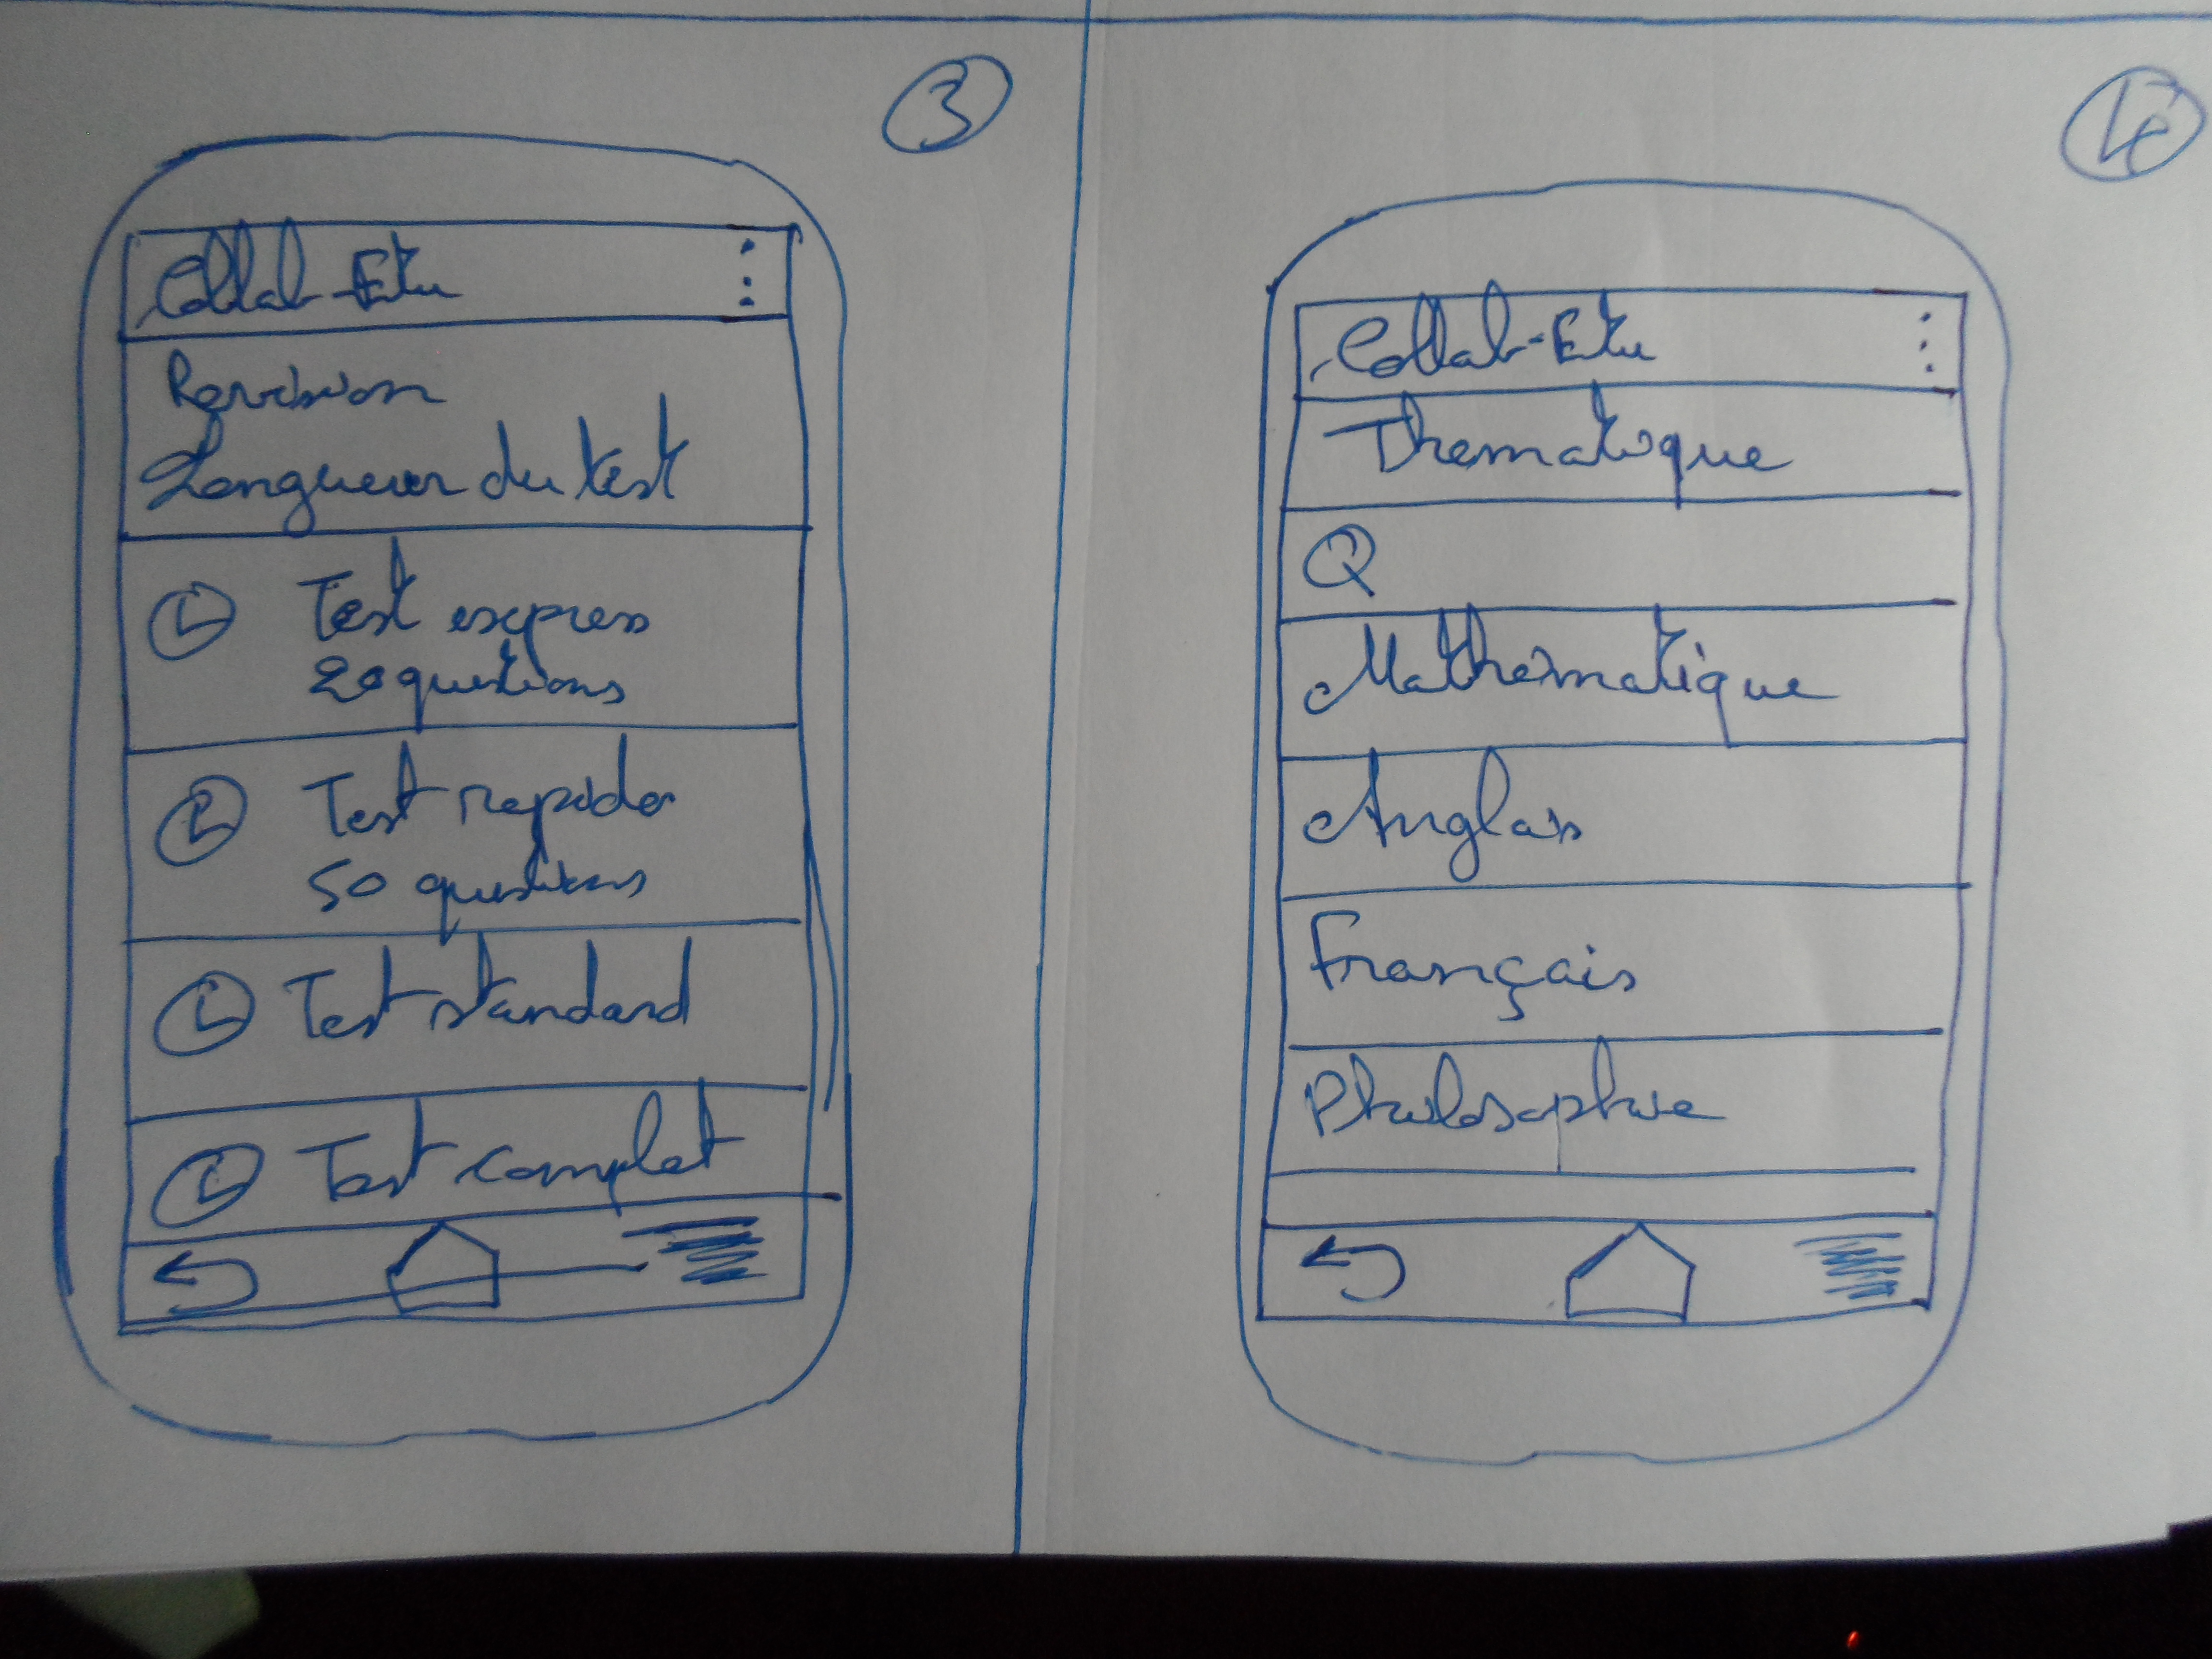 3
Collab-Etu
Revision
Longueur du test
Test express
20 questions
Test rapide
50 questions
Test standard
Test complet
4
Collab-Etu
Thematique
Mathematique
Anglais
Français
Philosophie